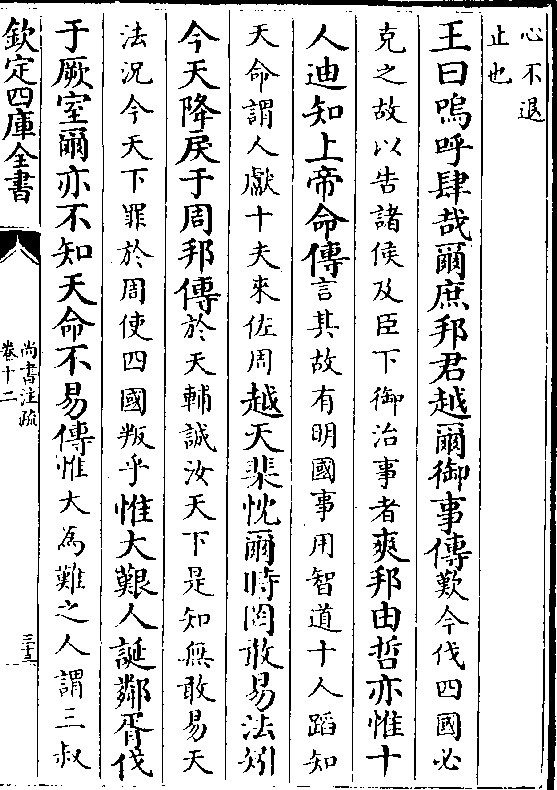 心不退
止也
王曰嗚呼肆哉爾庶邦君越爾御事傳歎今伐四國必
克之故以告諸侯及臣下御治事者爽邦由哲亦惟十
人迪知上帝命傳言其故有明國事用智道十人蹈知
天命謂人獻十夫來佐周越天棐忱爾時罔敢易法矧
今天降戾于周邦傳於天輔誠汝天下是知無敢易天
法況今天下罪於周使四國叛乎惟大艱人誕鄰胥伐
于厥室爾亦不知天命不易傳惟大為難之人謂三叔
欽定四庫全書
尚書注疏
卷十二
三十五